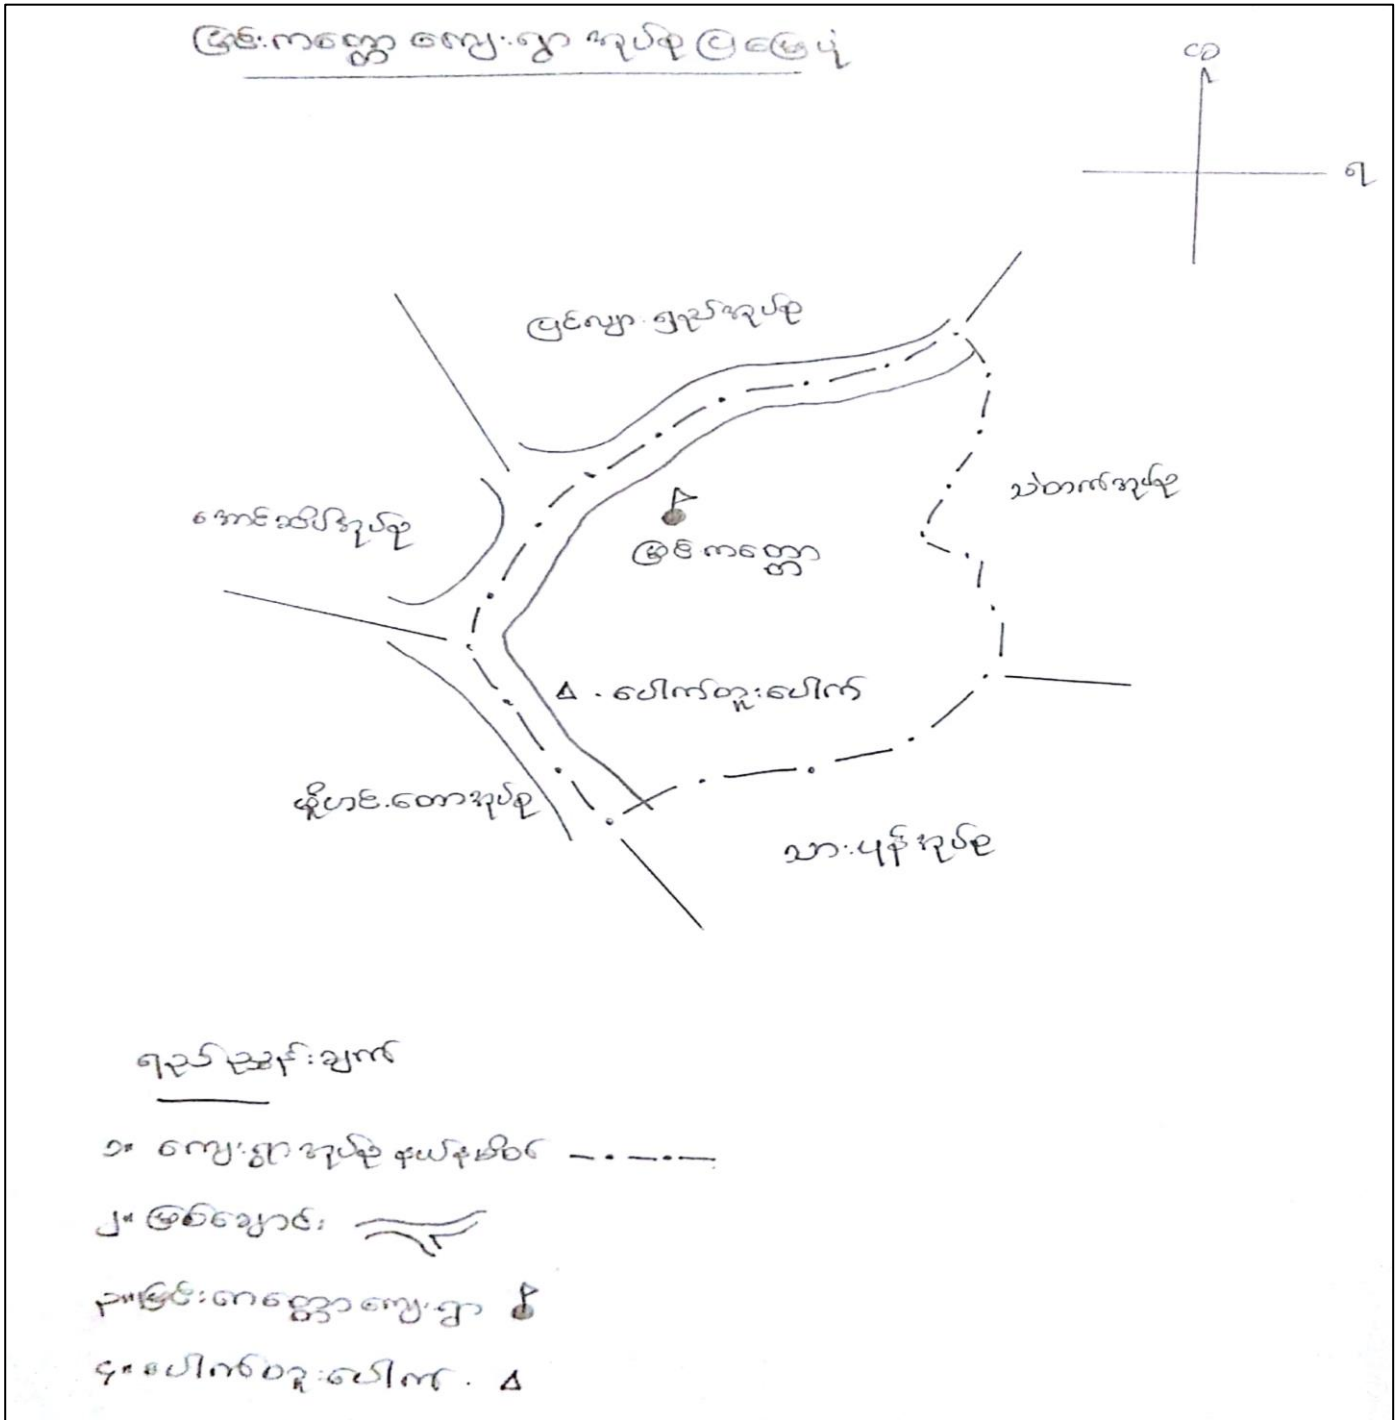 မြင်းကတ္တော ကျေးရွာ အုပ်စု ပြမြေပုံ
တ
ရ
ပြင်လျာ.ရှည်အုပ်စု
သဲတက်အုပ်စု
အောင်သိပ်အုပ်စု
မြင်ကတ္တော
ပေါက်တူးပေါက်
သားပုန်အုပ်စု
ရည်ညွှန်းချက်
၁။ ကျေးရွာအုပ်စု နယ်နမိတ်
၂။ မြစ်ချောင်း
၃။ မြင်းကတ္တောကျေးရွာ
၄။ ပေါက်တူးပေါက်.